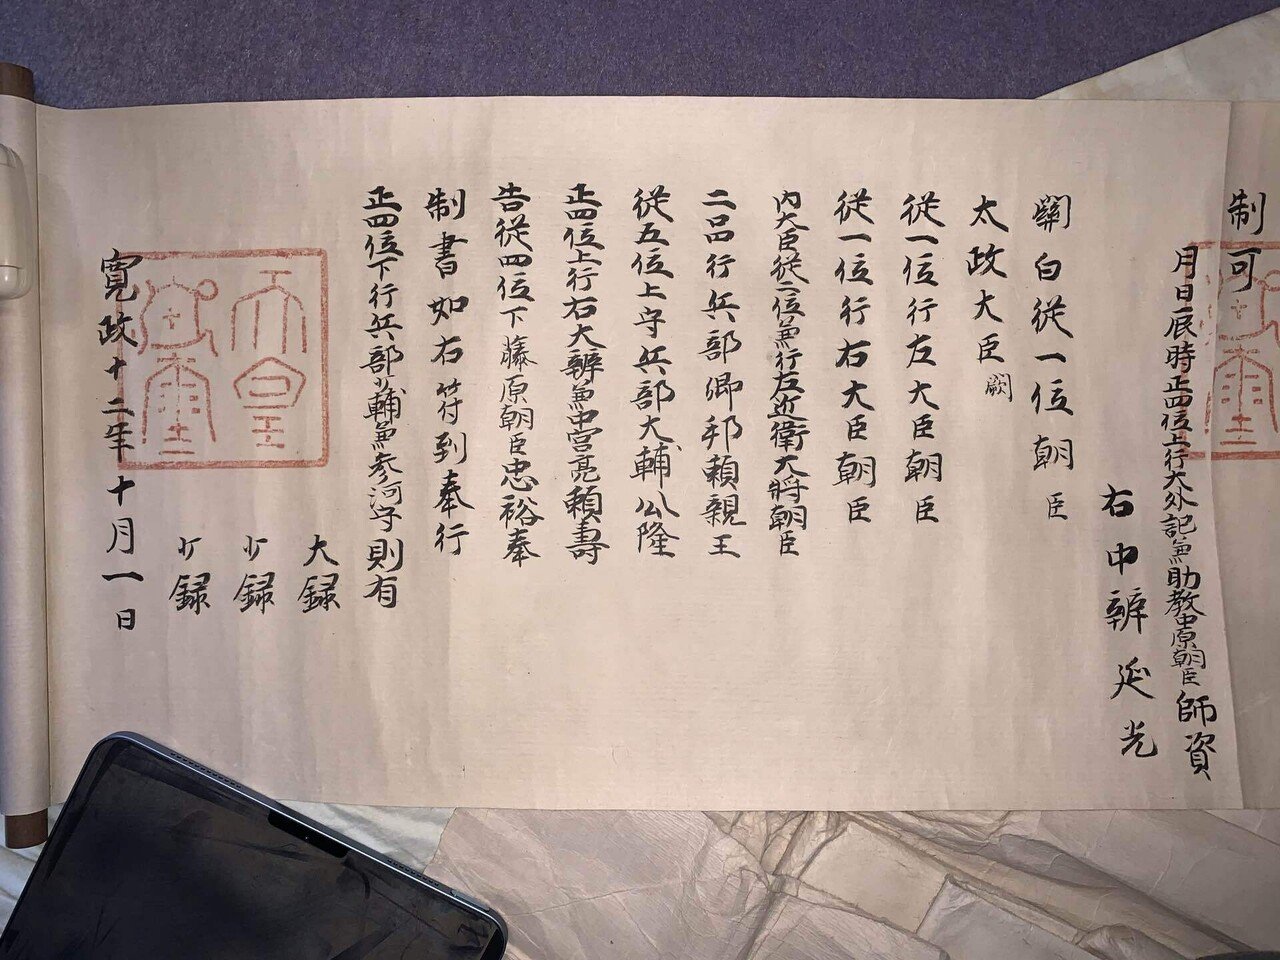 制可
月日辰時正四位上行大外記兼助教中原朝臣師資
右中辨延光
關白從一位朝臣
太政大臣闕
從一位行左大臣朝臣
從一位行右大臣朝臣
内大臣從二位兼行左近衛大將朝臣
二品行兵部卿邦頼親王
從五位上守兵部大輔公隆
正四位上行右大辨兼中宮亮頼壽
告從四位下藤原朝臣忠裕奉
制書如右符到奉行
正四位下行兵部少輔兼參河守則有
大録
少録
少録
寛政十二年十月一日
天皇
御璽